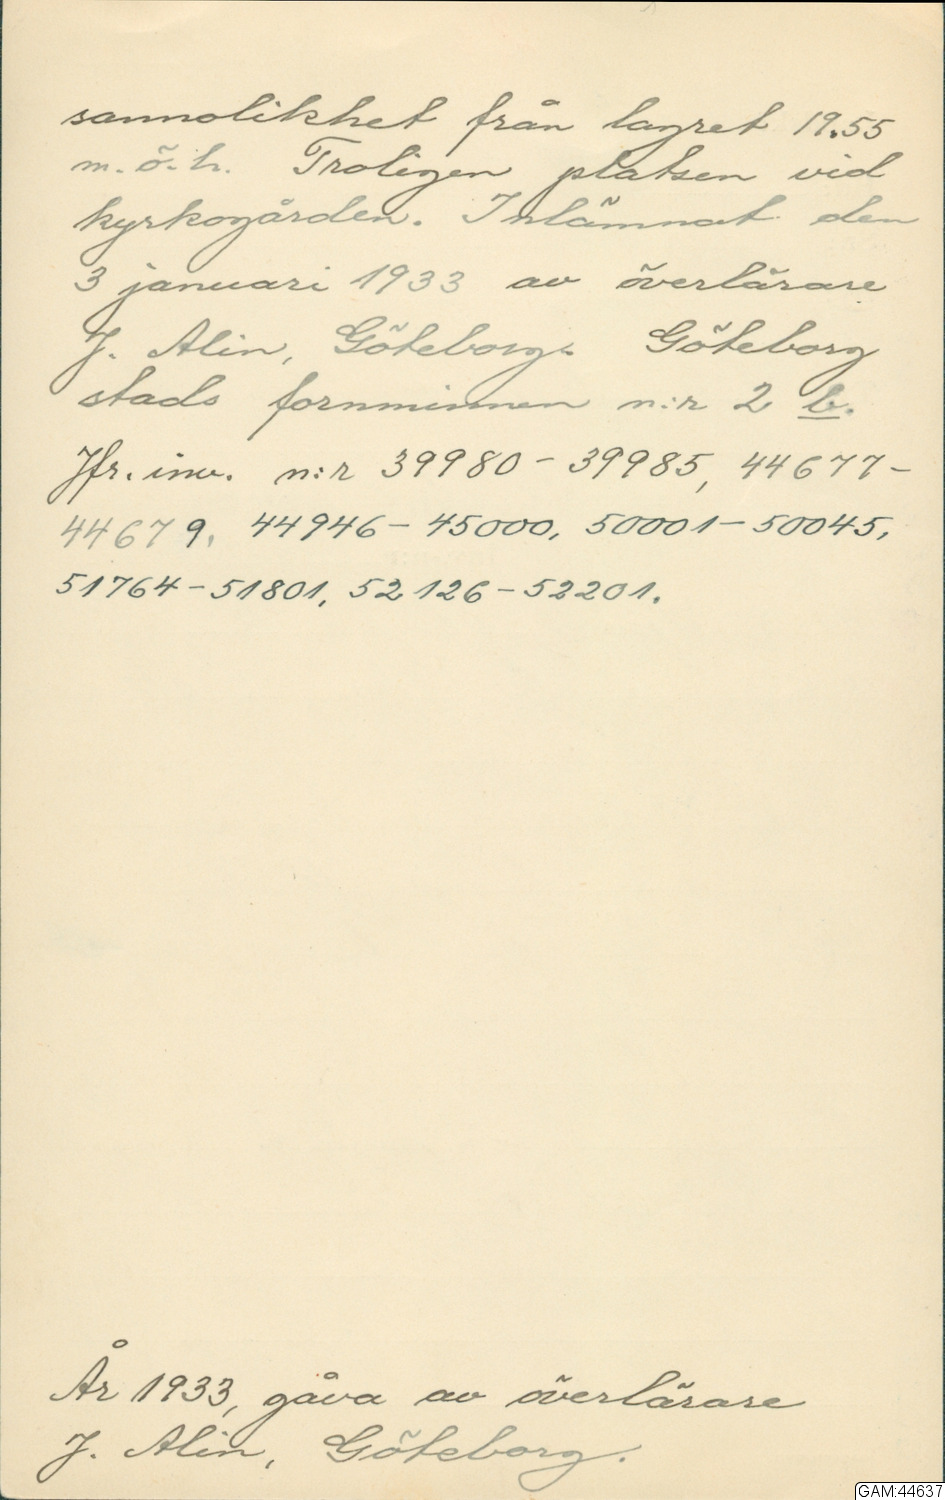 sannolikhet från lagret 19.55
m.ö.h. Troligen platsen vid
kyrkogården. Inlämnat den
3 januari 1933 av överlärare
J. Alin, Göteborg. Göteborg
stads fornminnen n:r 2 b.
Jfr. inv. n:r 39980-39985, 44677-
44679, 44946-45000, 50001-50045,
51764-51801, 52126-52201.
År 1933, gåva av överlärare
J. Alin, Göteborg.
GAM:44637